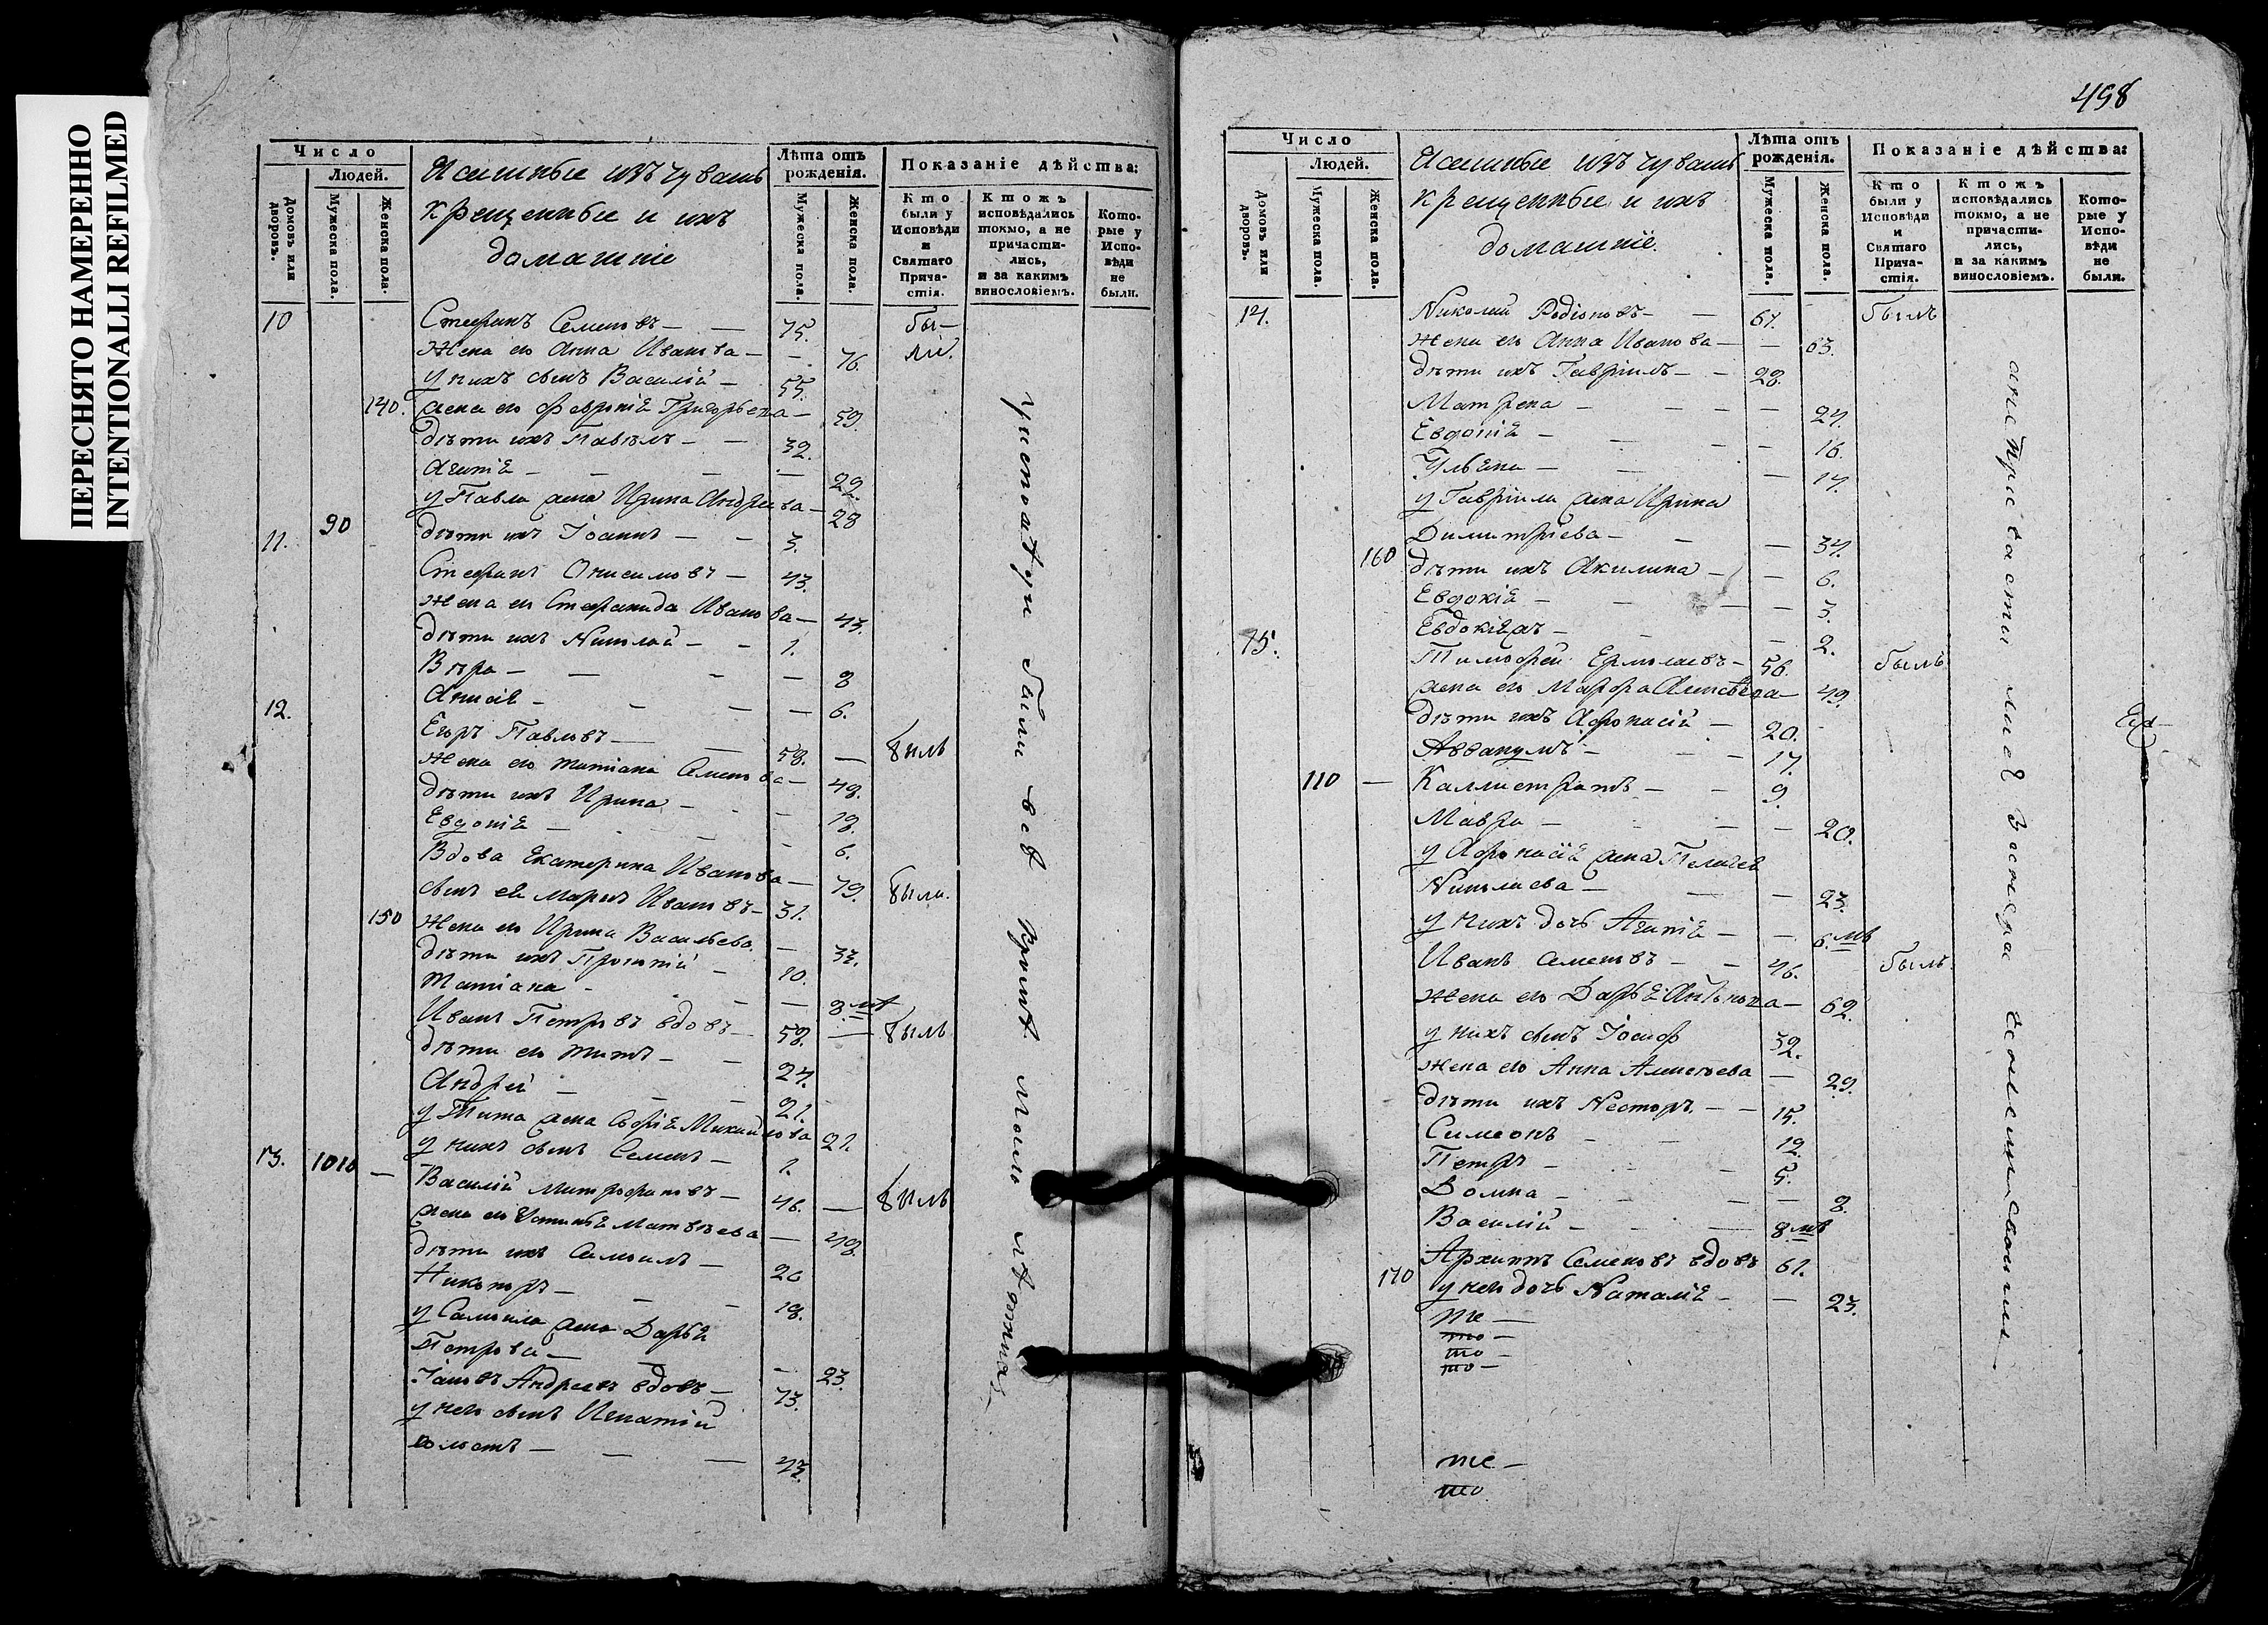 ПЕРЕСНЯТО НАМЕРЕННО
INTENTIONALLI REFILMED
Число
Людей.
Домовъ или дворовъ.
Мужеска пола.
Женска пола.
Ясашные изъ чувашъ
крещенные и ихъ
домашніе
Лѣта отъ рожденія.
Мужеска пола.
Женска пола.
Показаніе дѣйства:
Кто были у Исповѣди и Святаго Причастія.
Ктожъ исповѣдались токмо, а не причастились, и за какимъ винословіемъ.
Которые у Исповѣди не были.
10 Стефанъ Семеновъ — 75. бы-
Жена его Анна Иванова — 76. ли.
У нихъ сынъ Василій — 55.
140. жена его Февронія Григорьева — 59.
Дѣти ихъ Павелъ — 32.
Агапія — 22.
у Павла жена Ирина Андреева — 28
90 дѣти ихъ Іоаннъ — 3.
11. Стефанъ Онисимовъ — 43.
Жена его Стефанида Иванова — 43.
дѣти ихъ Николай — 1.
Вѣра — 8
Анисія — 6.
12. Егоръ Павловъ — 58. — былъ
Жена его Татіана Семенова — 48.
дѣти ихъ Ирина — 18.
Евдокія — 6.
Вдова Екатерина Иванова — 79. была.
сынъ ея Ивановъ — 31.
150 Жена его Ирина Васильева — 33.
дѣти ихъ Прокопій — 10.
Татіана — 8. мѣ
Иванъ Петровъ вдовъ — 58. — былъ
дѣти его Титъ — 24.
Андрей — 21.
у Тита жена Софія Михайлова 21.
у нихъ сынъ Семенъ — 1.
13. 1010 — Василій Митрофановъ — 46. — былъ
жена его Устинья Матвѣева — 48.
дѣти ихъ Самоилъ — 20
Никоноръ — 18.
у Самоила жена Дарья
Петрова — 23.
Іаковъ Андреевъ вдовъ — 73.
у него сынъ Игнатій
холостъ — 43.
498
Число
Людей.
Домовъ или дворовъ.
Мужеска пола.
Женска пола.
Ясашные изъ чувашъ
крещенные и ихъ
домашніе.
Лѣта отъ рожденія.
Мужеска пола.
Женска пола.
Показаніе дѣйства:
Кто были у Исповѣди и Святаго Причастія.
Ктожъ исповѣдались токмо, а не причастились, и за какимъ винословіемъ.
Которые у Исповѣди не были.
14. Николай Родіоновъ — 61. былъ
Жена его Анна Иванова — 63.
дѣти ихъ Гавріилъ — 28.
Матрена — 24.
Евдокія — 16.
Ульяна — 14.
у Гавріила жена Ирина
Димитріева — 34.
160 дѣти ихъ Акилина — 6.
Евдокія — 3.
Евдокія жъ — 2.
15. Тимофей Ермолаевъ — 56. былъ
жена его Марфа Алексѣева — 49.
дѣти ихъ Афонасій — 20.
Аввакумъ — 17.
110 — Каллистратъ — 9.
Мавра — 20.
у Афонасія жена Пелагея
Николаева — 23.
у нихъ дочь Агапія — 6. мѣ
Иванъ Семеновъ — 46. былъ.
Жена его Дарья Антонова — 62.
у нихъ сынъ Іосифъ 32.
Жена его Анна Алексѣева — 29.
дѣти ихъ Несторъ — 15.
Симеонъ — 12.
Петръ — 5.
Домна — 8.
Василій — 8. мѣ
Архипъ Семеновъ вдовъ 61.
170 у него дочь Наталія — 23.